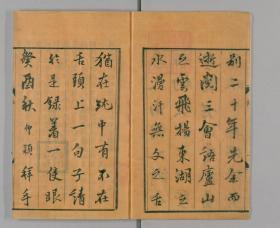 別二十年先余西
逝閱三會語廬山
之雲飛揚東湖之
水漫汗無文之舌
猶在既中有不在
舌頭上一句子請
於是錄著一隻眼
癸酉秋仲穎拜手